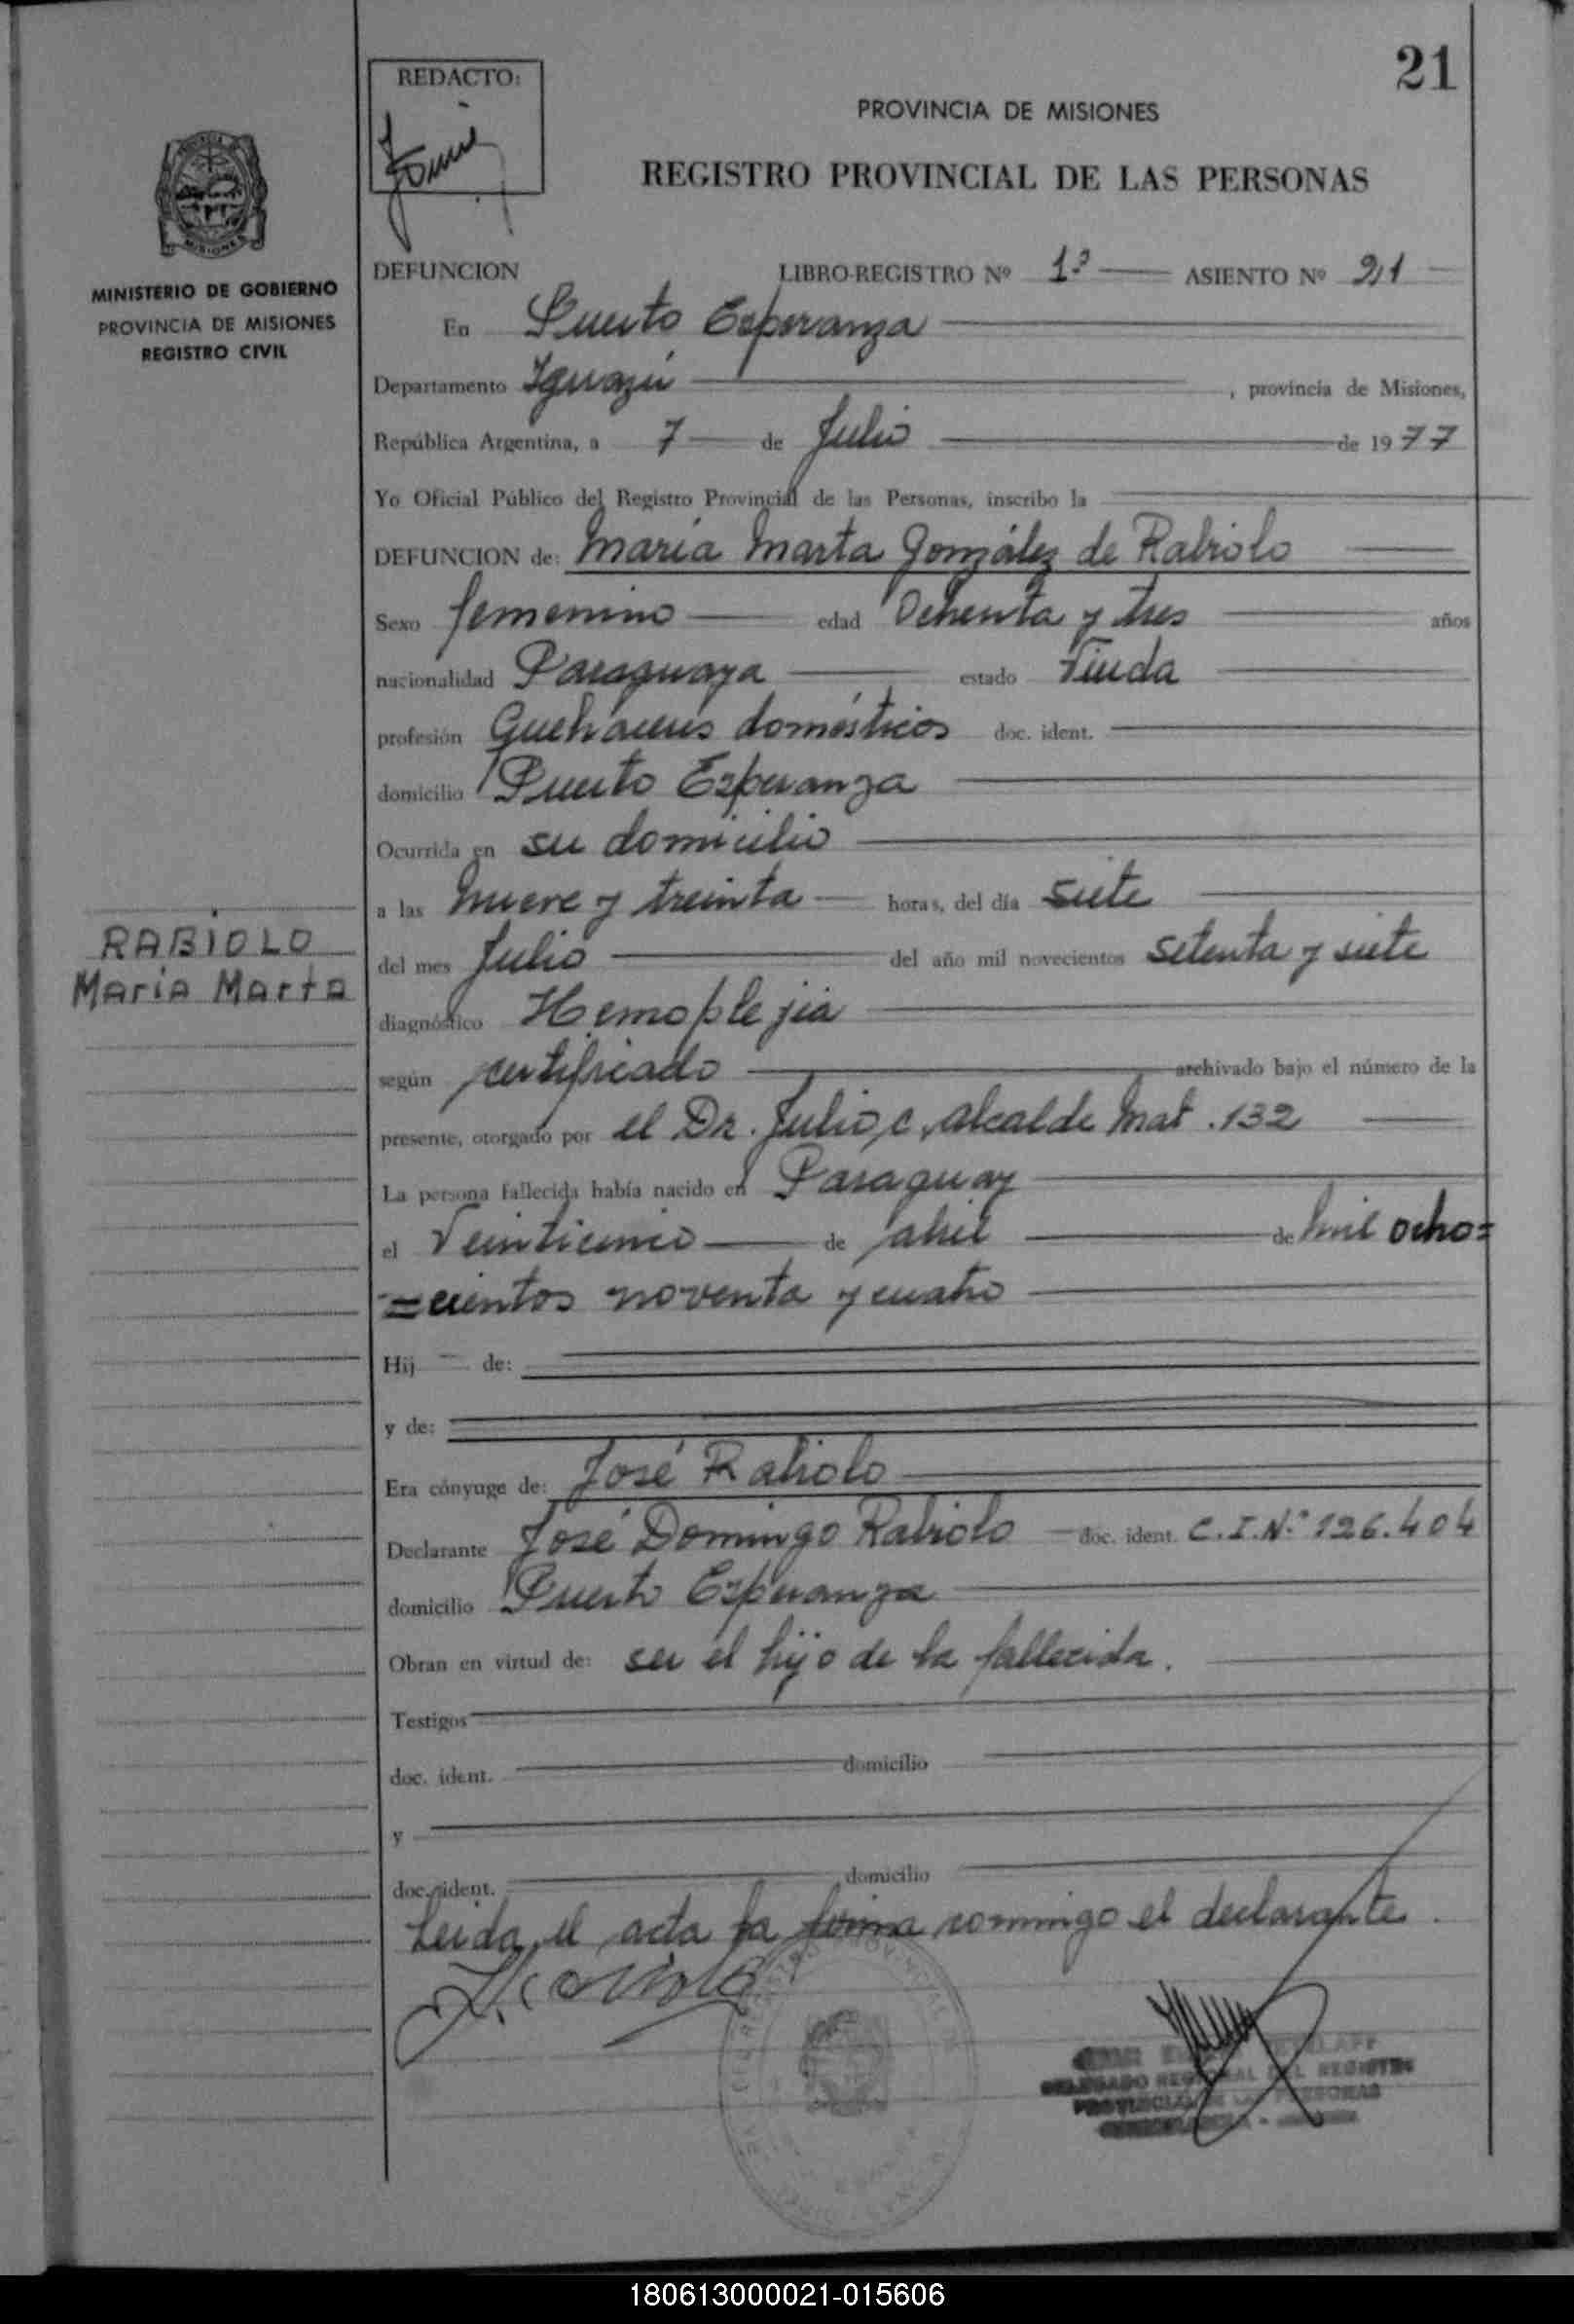 21
REDACTO:
PROVINCIA DE MISIONES
REGISTRO PROVINCIAL DE LAS PERSONAS
MISIONES
MINISTERIO DE GOBIERNO
PROVINCIA DE MISIONES
REGISTRO CIVIL
DEFUNCION LIBRO-REGISTRO Nº 1º ASIENTO Nº 21
En Puerto Esperanza
Departamento Iguazú, provincia de Misiones,
República Argentina, a 7 de Julio de 1977
Yo Oficial Público del Registro Provincial de las Personas, inscribo la
DEFUNCION de: María Marta González de Rabiolo
Sexo femenino edad Ochenta y tres años
nacionalidad Paraguaya estado Viuda
profesión Quehaceres domésticos doc. ident.
domicilio Puerto Esperanza
Ocurrida en su domicilio
a las nueve y treinta horas, del día siete
RABIOLO
María Marta
del mes Julio del año mil novecientos setenta y siete
diagnóstico Hemoplejia
según certificado archivado bajo el número de la
presente, otorgado por el Dr. Julio C. Alcalde Mat. 132
La persona fallecida había nacido en Paraguay
el Veinticinco de abril de mil ocho=
=cientos noventa y cuatro
Hij de:
y de:
Era cónyuge de: José Rabiolo
Declarante José Domingo Rabiolo doc. ident. C.I.Nº 126.404
domicilio Puerto Esperanza
Obran en virtud de: ser el hijo de la fallecida.
Testigos
doc. ident. domicilio
y
doc. ident. domicilio
Leida el acta la firma conmigo el declarante.
DELEGADO REGIONAL DEL REGISTRO
PERSONAS
180613000021-015606